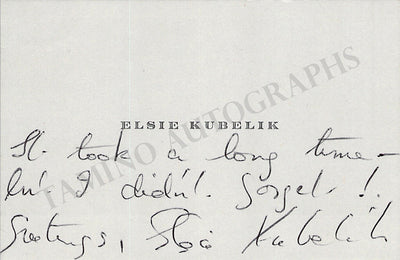 TAMINO AUTOGRAPHS
ELSIE KUBELIK
It took a long time -
but I didn't forget!
Greetings, Elsie Kubelik